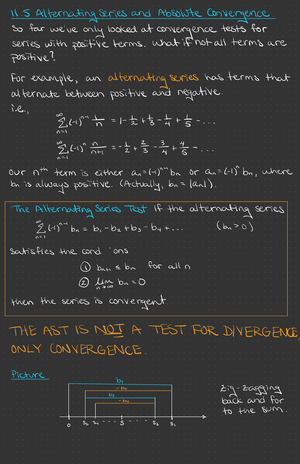 11.5 Alternating Series and Absolute Convergence
So far we've only looked at convergence tests for
series with positive terms. What if not all terms are
positive?
For example, an alternating series has terms that
alternate between positive and negative.
i.e.,
∞ Σ n=1 (-1)ⁿ⁻¹ 1/n = 1 - 1/2 + 1/3 - 1/4 + 1/5 - ...
∞ Σ n=1 (-1)ⁿ n/n+1 = -1/2 + 2/3 - 3/4 + 4/5 - ...
Our nᵗʰ term is either aₙ=(-1)ⁿ⁻¹bₙ or aₙ=(-1)ⁿbₙ, where
bₙ is always positive. (Actually, bₙ=|aₙ|).
The Alternating Series Test If the alternating series
∞ Σ n=1 (-1)ⁿ⁻¹ bₙ = b₁ - b₂ + b₃ - b₄ + ... (bₙ > 0)
satisfies the cond ions
① bₙ₊₁ ≤ bₙ for all n
② lim n→∞ bₙ = 0
then the series is convergent.
THE AST IS NOT A TEST FOR DIVERGENCE,
ONLY CONVERGENCE.
Picture
b₁
-b₂
b₃
-b₄
0 S₂ S₄ ... S ... S₃ S₁
zig-zagging
back and for
to the sum.